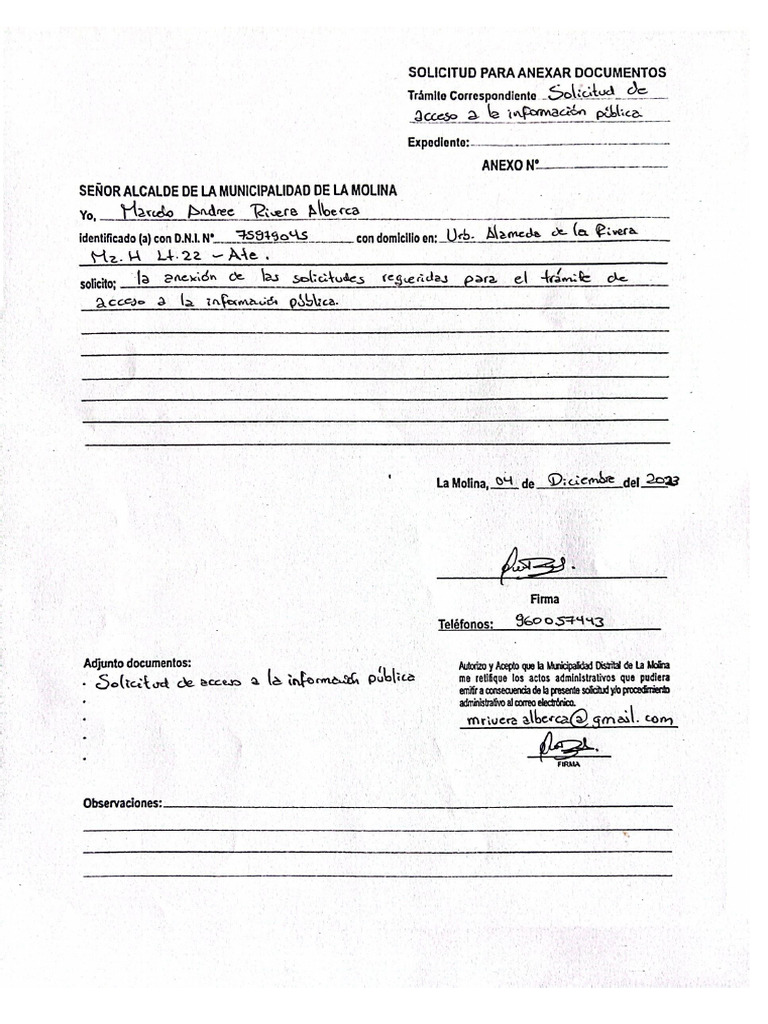 SOLICITUD PARA ANEXAR DOCUMENTOS
Trámite Correspondiente Solicitud de
acceso a la información pública
Expediente:
ANEXO N°
SEÑOR ALCALDE DE LA MUNICIPALIDAD DE LA MOLINA
Yo, Marcelo Andree Rivera Alberca
identificado (a) con D.N.I. N° 75979045 con domicilio en: Urb. Alameda de la Rivera
Mz. H Lt. 22 - Ate.
solicito; la anexión de las solicitudes requeridas para el trámite de
acceso a la información pública.
La Molina, 04 de Diciembre del 2023
Firma
Teléfonos: 960057443
Adjunto documentos:
• Solicitud de acceso a la información pública
•
•
•
•
Autorizo y Acepto que la Municipalidad Distrital de La Molina
me retifique los actos administrativos que pudiera
emitir a consecuencia de la presente solicitud y/o procedimiento
administrativo al correo electrónico.
mriveraalberca@gmail.com
FIRMA
Observaciones: